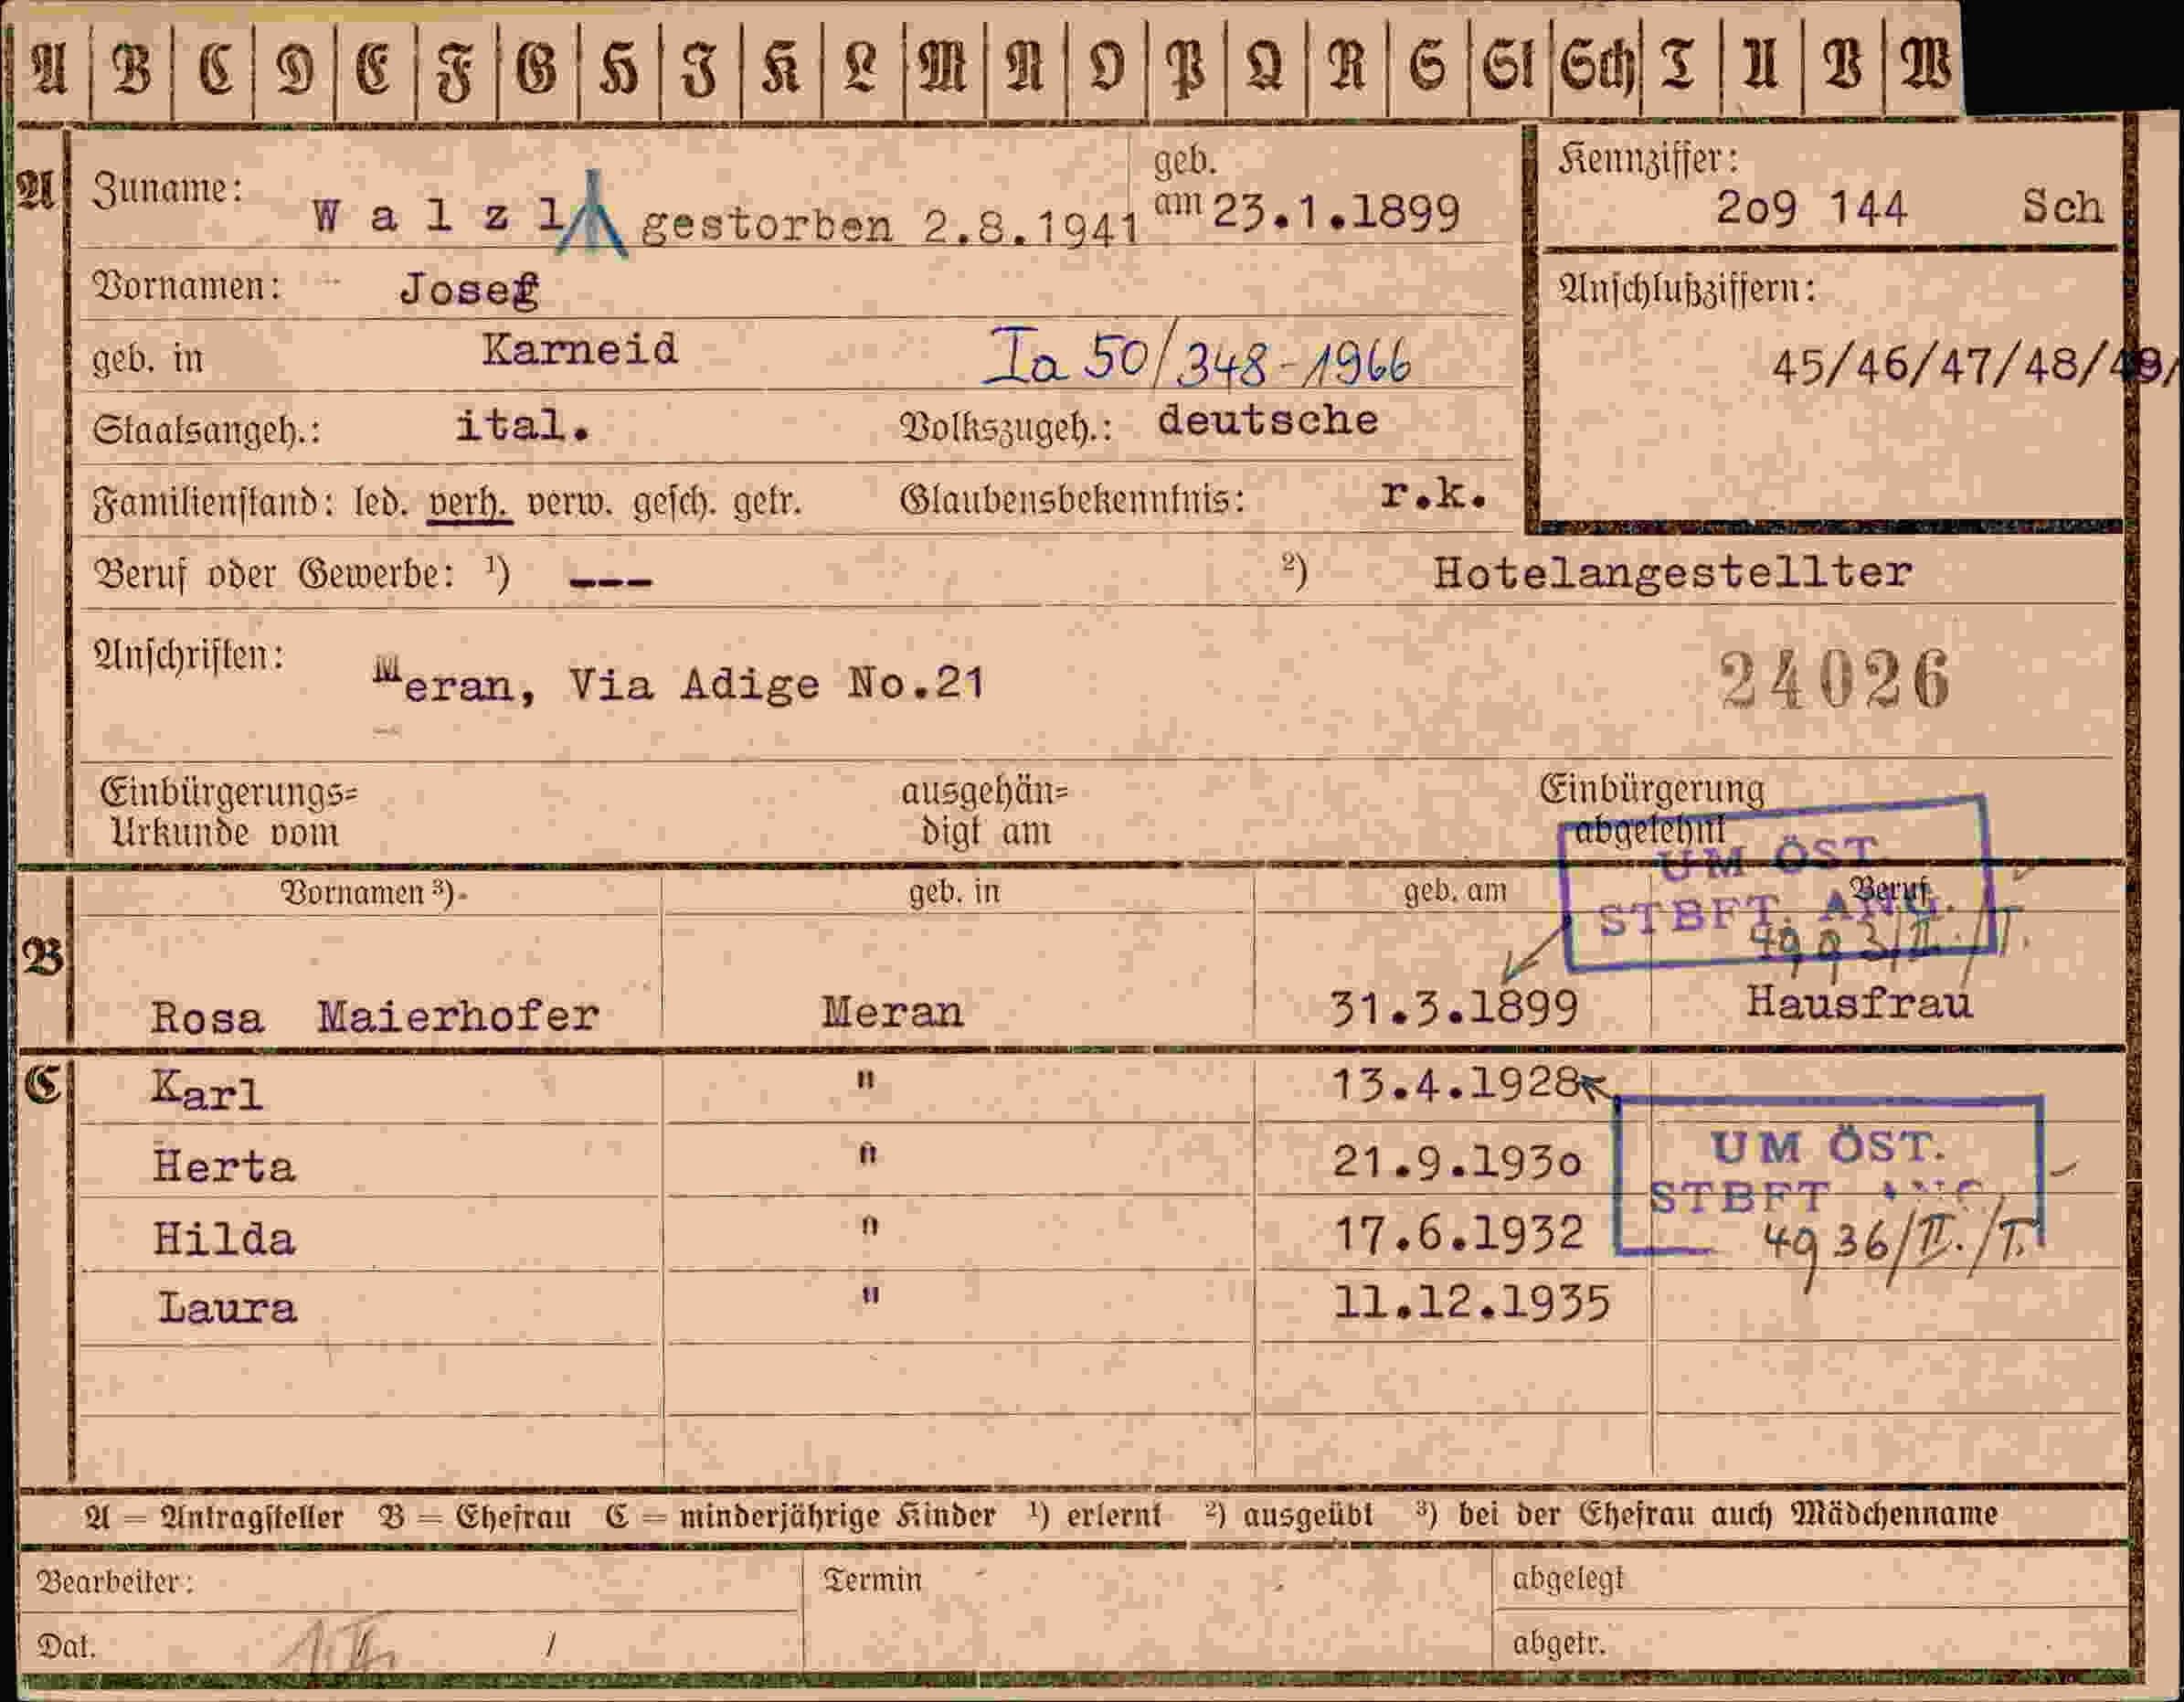 A B C D E F G H J K L M N O P Q R S St Sch T U V W
A Zuname: Walzl gestorben 2.8.1941 geb. am 23.1.1899
Kennziffer: 2o9 144 Sch
Vornamen: Josef
Anschlußziffern:
geb. in Karneid Ia 50/348-1966
45/46/47/48/49/
Staatsangeh.: ital. Volkszugeh.: deutsche
Familienstand: led. verh. verw. gesch. getr. Glaubensbekenntnis: r.k.
Beruf oder Gewerbe: ¹) --- ²) Hotelangestellter
Anschriften: Meran, Via Adige No.21
24026
Einbürgerungs= ausgehän= Einbürgerung
Urkunde vom digt am abgelehnt
UM ÖST.
B Vornamen ³) geb. in geb. am Beruf
STBFT. ANG.
Rosa Maierhofer Meran 31.3.1899 Hausfrau
C Karl " 13.4.1928
UM ÖST.
Herta " 21.9.193o
STBFT ANG
Hilda " 17.6.1932 4936/II./T.
Laura " 11.12.1935
A = Antragsteller B = Ehefrau C = minderjährige Kinder ¹) erlernt ²) ausgeübt ³) bei der Ehefrau auch Mädchenname
Bearbeiter: Termin abgelegt
Dat. / abgetr.